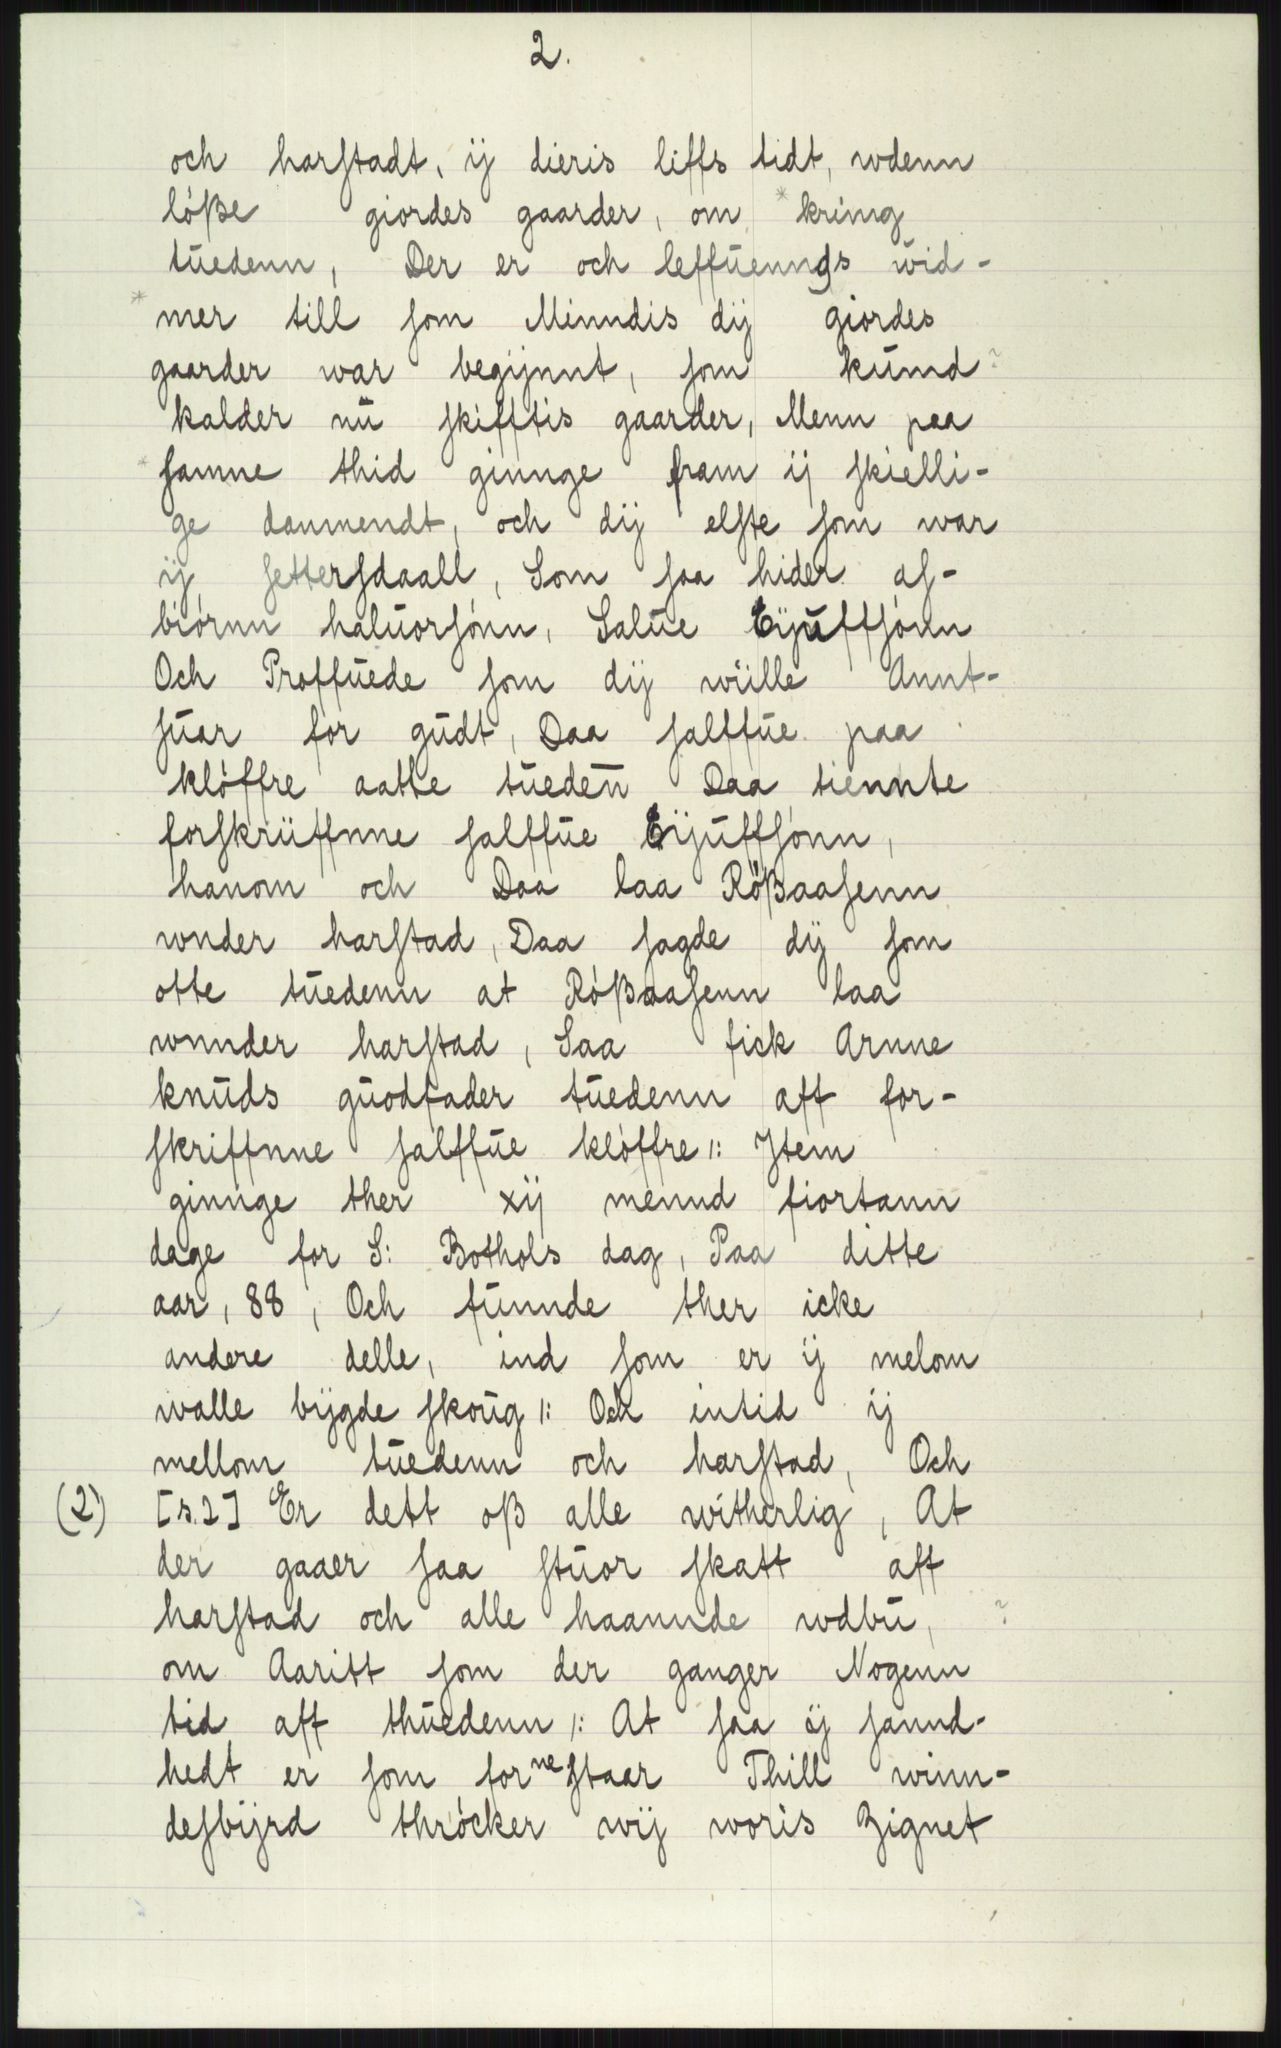 2.
och harſtadt, ij dieris liffs tidt, wdenn
lóße giordes gaarder, om *kring
tŭedenn, Der er och leffŭennds wid-
*mer till ſom Minndis dij giordes
gaarder war begijnnt, ſom kŭmd ?
kalder nŭ ſkifftis gaarder, Menn paa
*ſamne thid ginnge fram ij ſkielli-
ge danmendt, och dij elſte ſom war
ij ſetterſdaall, Som ſaa hider aſ-
biórnn halŭorſónn, Salŭe Eijŭffſónn
Och Proffŭede ſom dij wŭlle Annt-
ſŭar for gŭdt, Daa ſalffŭe paa
klóffre aatte tŭeden̄ Daa tiennte
forſkrŭffnne ſalffŭe Eijŭffſónn,
hanom och Daa laa Rößaaſenn
wnder harſtad, Daa ſagde dij ſom
otte tŭedenn at Róßaaſenn laa
wnnder harſtad, Saa fick Arnne
knŭds gŭodfader tŭedenn aff for-
ſkriffnne ſalffŭe klóffre /: Jtem
ginnge ther xij mennd fiortann
dage for S: Bothols dag, Paa ditte
aar, 88, Och fŭnnde ther icke
andere delle, ind ſom er ij melom
walle bijgde ſkoŭg /: Och intid ij
mellom tŭedenn och harſtad, Och
(2) [s.2] Er dett oß alle witherlig, At
der gaaer ſaa ſtŭor ſkatt aff
harſtad och alle haannde wdbŭ, ?
om Aaritt ſom der ganger Nogenn
tid aff thŭedenn /: At ſaa ij ſannd-
hedt er ſom forneſtaar Thill winn-
deſbijrd thrócker wij woris Zignet